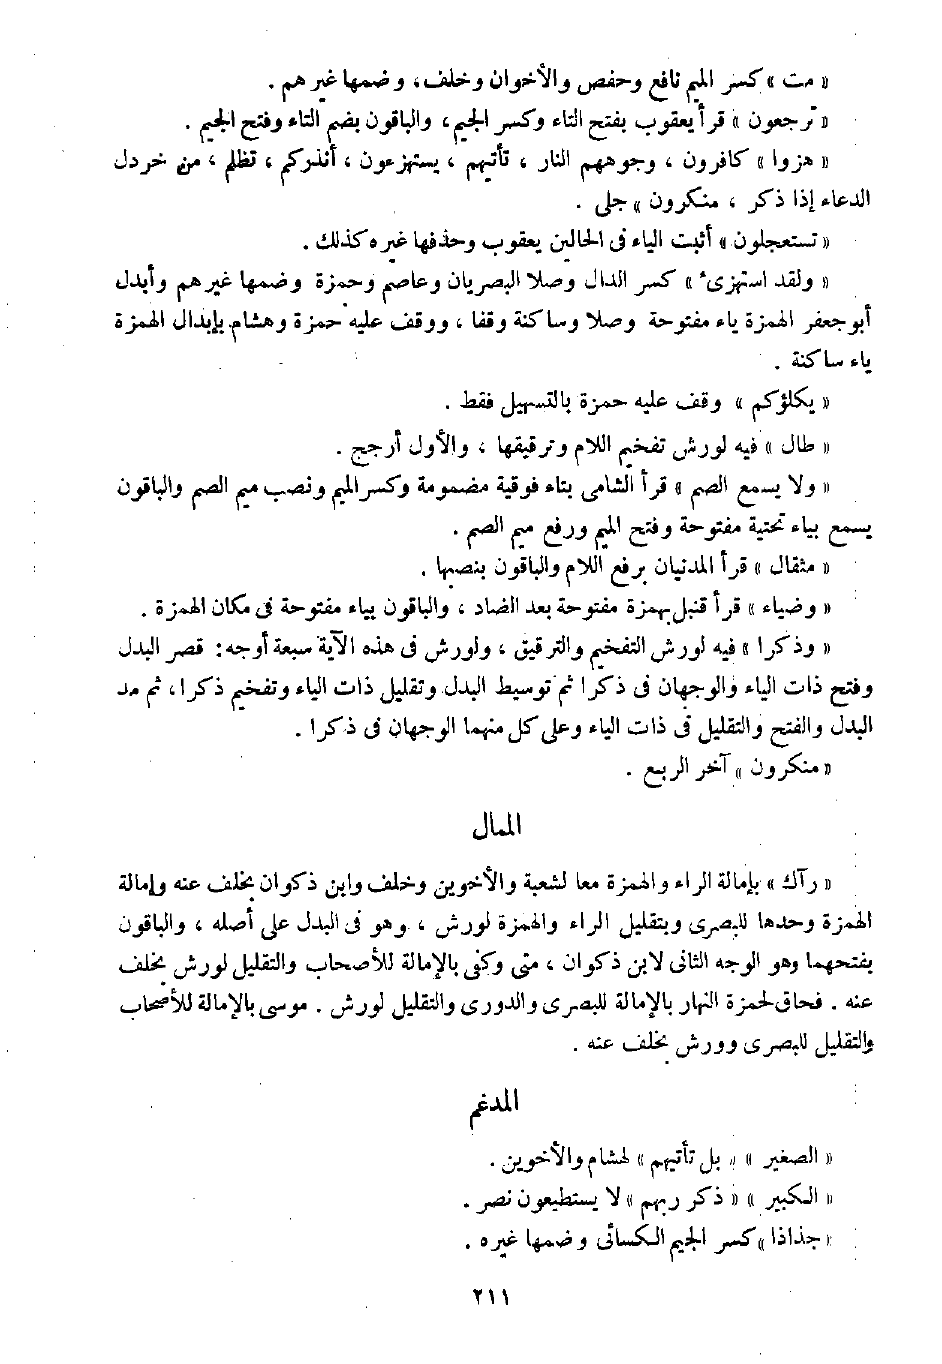 « مت » كسر الميم نافع وحفص والأخوان وخلف، وضمها غيرهم .
« ترجعون » قرأ يعقوب بفتح التاء وكسر الجيم، والباقون بضم التاء وفتح الجيم .
« هزوا » كافرون ، وجوههم النار ، تأتيهم ، يستهزءون ، أنذركم ، تظلم ، من خردل
الدعاء إذا ذكر ، منكرون » جلى .
« تستعجلون » أثبت الياء فى الحالين يعقوب وحذفها غيره كذلك .
« ولقد استهزىء » كسر الدال وصلا البصريان وعاصم وحمزة وضمها غيرهم وأبدل
أبو جعفر الهمزة ياء مفتوحة وصلا وساكنة وقفا ، ووقف عليه حمزة وهشام بإبدال الهمزة
ياء ساكنة .
« يكلؤكم » وقف عليه حمزة بالتسهيل فقط .
« طال » فيه لورش تفخيم اللام وترقيقها ، والأول أرجح .
« ولا يسمع الصم » قرأ الشامى بتاء فوقية مضمومة وكسر الميم ونصب ميم الصم والباقون
يسمع بياء تحتية مفتوحة وفتح الميم ورفع ميم الصم .
« مثقال » قرأ المدنيان برفع اللام والباقون بنصبها .
« وضياء » قرأ قنبل بهمزة مفتوحة بعد الضاد ، والباقون بياء مفتوحة فى مكان الهمزة .
« وذكرا » فيه لورش التفخيم والترقيق ، ولورش فى هذه الآية سبعة أوجه: قصر البدل
وفتح ذات الياء والوجهان فى ذكرا ثم توسيط البدل وتقليل ذات الياء وتفخيم ذكرا، ثم مد
البدل والفتح والتقليل فى ذات الياء وعلى كل منهما الوجهان فى ذكرا .
« منكرون » آخر الربع .
الممال
« رآك » بإمالة الراء والهمزة معا لشعبة والأخوين وخلف وابن ذكوان بخلف عنه وإمالة
الهمزة وحدها للبصرى وبتقليل الراء والهمزة لورش ، وهو فى البدل على أصله ، والباقون
بفتحهما وهو الوجه الثانى لابن ذكوان ، متى وكفى بالإمالة للأصحاب والتقليل لورش بخلف
عنه . فحاق لحمزة النهار بالإمالة للبصرى والدورى والتقليل لورش . موسى بالإمالة للأصحاب
والتقليل للبصرى وورش بخلف عنه .
المدغم
« الصغير » « بل تأتيهم » لهشام والأخوين .
« الكبير » « ذكر ربهم » لا يستطيعون نصر .
« جذاذا » كسر الجيم الكسائى وضمها غيره .
٢١١